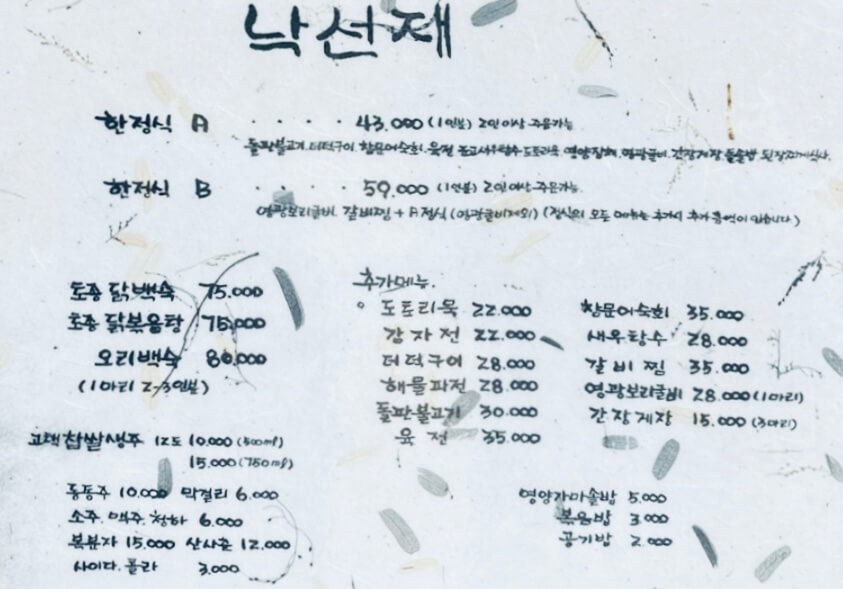 낙선재
한정식 A · · · · 43.000 (1인분) 2인이상 주문가능
돌판불고기. 더덕구이. 참문어숙회. 육전 표고새우탕수 도토리묵. 영양잡채. 영광굴비. 간장게장. 돌솥밥. 된장찌개식사.
한정식 B · · · · 59.000 (1인분) 2인이상 주문가능.
영광보리굴비. 갈비찜 + A정식 (영광굴비제외) (정식의 모든 메뉴는 추가시 추가금액이 있습니다)
토종 닭백숙 75.000
토종 닭볶음탕 75.000
오리백숙 80.000
(1마리 2-3인분)
고택찹쌀생주 12도 10.000 (500ml)
15.000 (750ml)
동동주 10.000 막걸리 6.000
소주. 맥주. 청하 6.000
복분자 15.000 산사춘 12.000
사이다. 콜라 3.000
추가메뉴.
도토리묵 22.000
감자전 22.000
더덕구이 28.000
해물파전 28.000
돌판불고기 30.000
육전 35.000
참문어숙회 35.000
새우탕수 28.000
갈비찜 35.000
영광보리굴비 28.000 (1마리)
간장게장 15.000 (3마리)
영양가마솥밥 5.000
볶음밥 3.000
공기밥 2.000